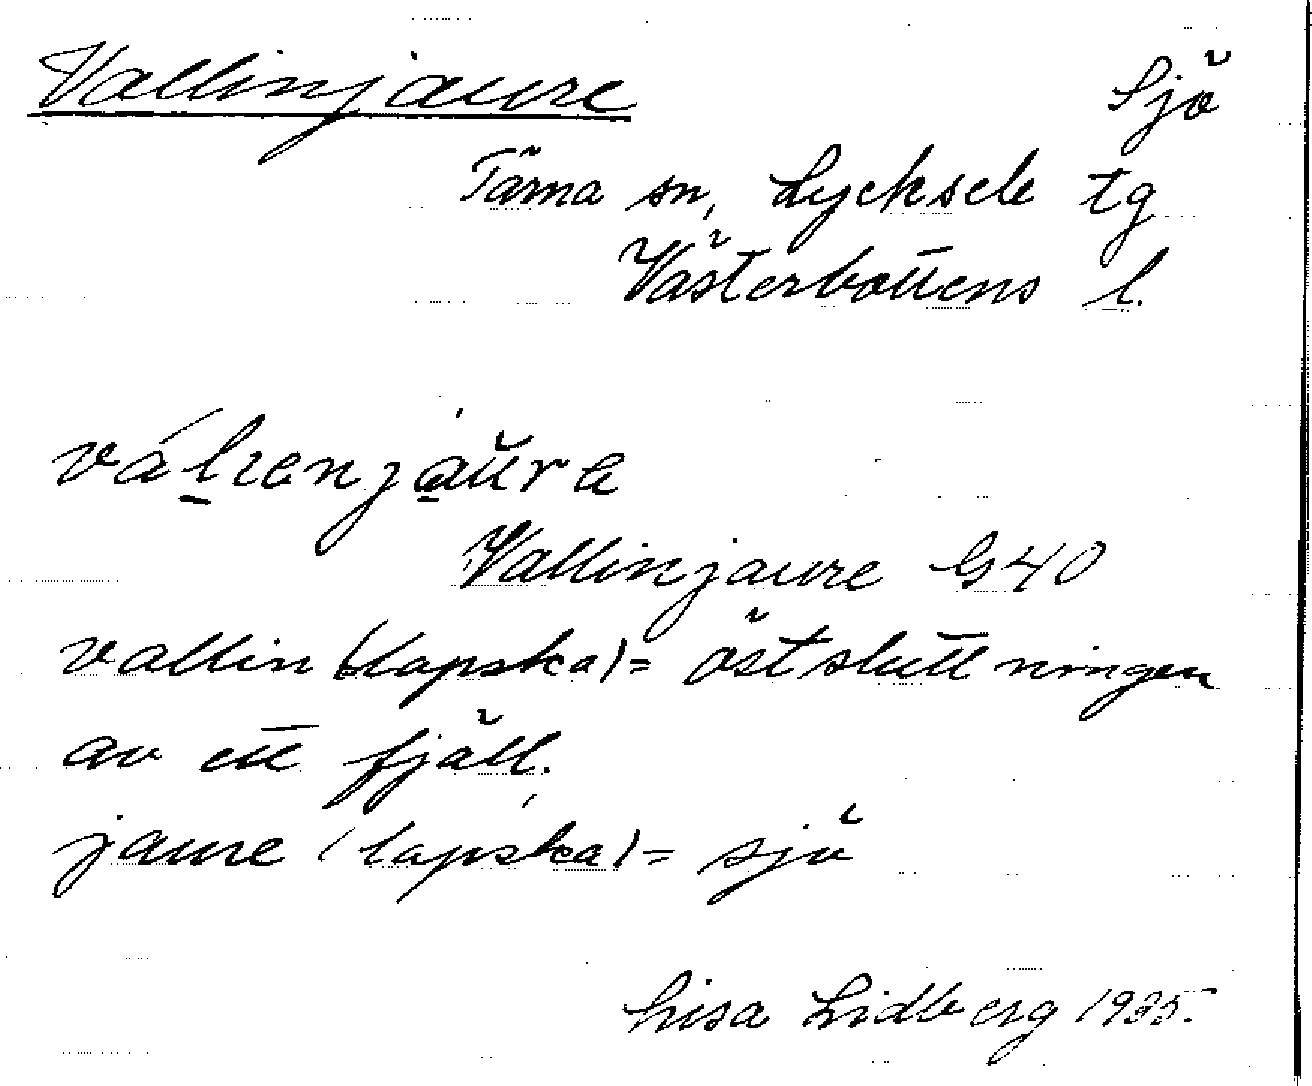 Vallinjaure Sjö
Tärna sn, Lycksele tg
Västerbottens l.
Vallinjaure G40
vallin (lapska) = östsluttningen
av ett fjäll.
jaure (lapska) = sjö
Lisa Lidberg 1935.